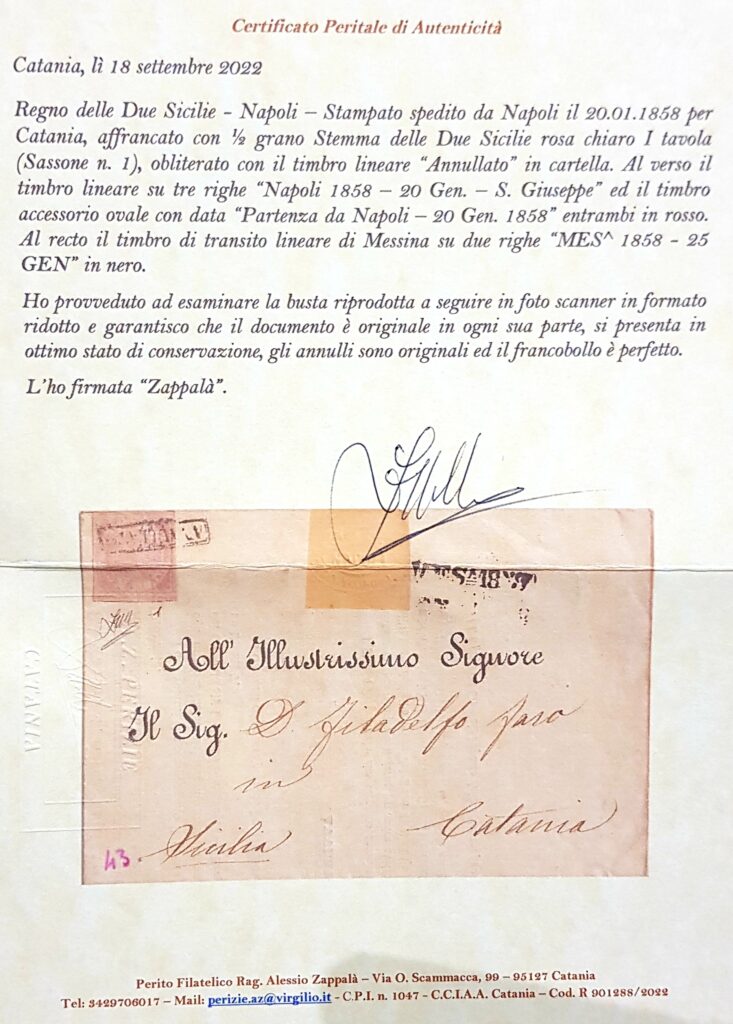 Certificato Peritale di Autenticità
Catania, lì 18 settembre 2022
Regno delle Due Sicilie - Napoli – Stampato spedito da Napoli il 20.01.1858 per
Catania, affrancato con ½ grano Stemma delle Due Sicilie rosa chiaro I tavola
(Sassone n. 1), obliterato con il timbro lineare "Annullato" in cartella. Al verso il
timbro lineare su tre righe "Napoli 1858 – 20 Gen. – S. Giuseppe" ed il timbro
accessorio ovale con data "Partenza da Napoli – 20 Gen. 1858" entrambi in rosso.
Al recto il timbro di transito lineare di Messina su due righe "MES^ 1858 - 25
GEN" in nero.
Ho provveduto ad esaminare la busta riprodotta a seguire in foto scanner in formato
ridotto e garantisco che il documento è originale in ogni sua parte, si presenta in
ottimo stato di conservazione, gli annulli sono originali ed il francobollo è perfetto.
L'ho firmata "Zappalà".
All' Illustrissimo Signore
Il Sig. D. Filadelfo Faro
in
Catania
Sicilia
43.
CATANIA
Perito Filatelico Rag. Alessio Zappalà – Via O. Scammacca, 99 – 95127 Catania
Tel: 3429706017 – Mail: perizie.az@virgilio.it - C.P.I. n. 1047 - C.C.I.A.A. Catania – Cod. R 901288/2022